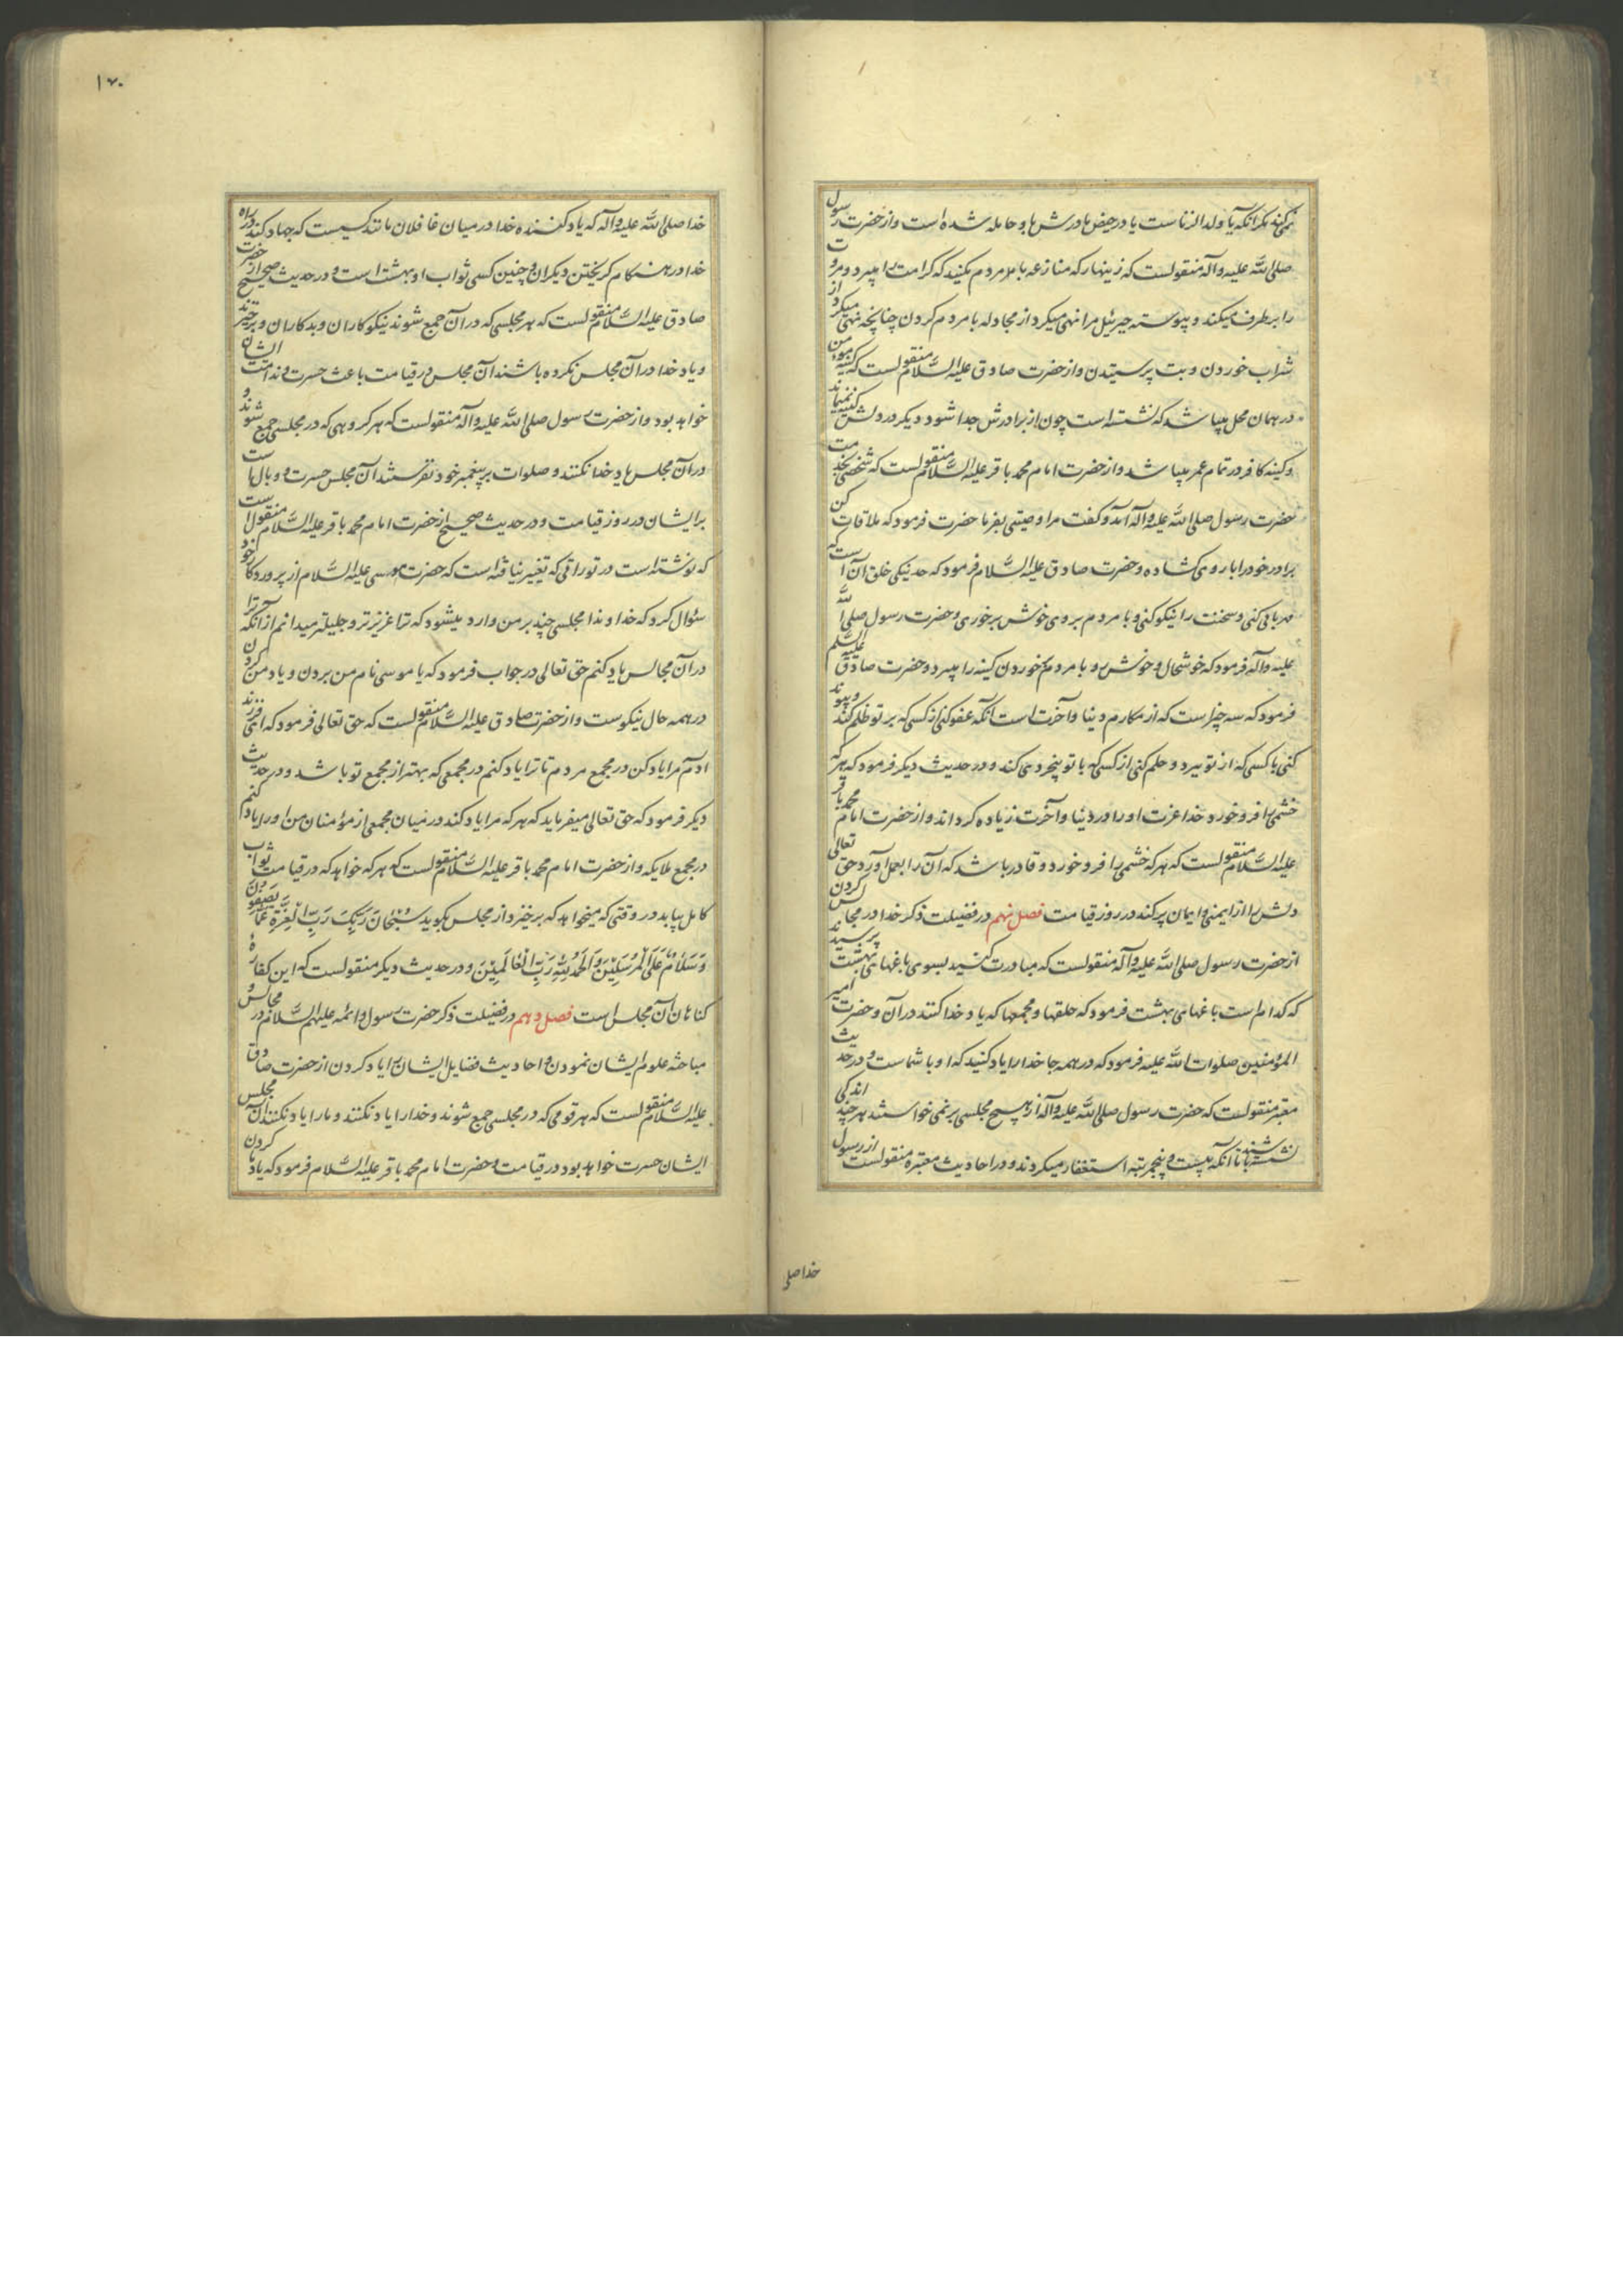 نمی‌کند مگر آنکه یا ولد الزناست یا در حیض مادرش باو حامله شده است و از حضرت رسول
صلی الله علیه وآله منقولست که زینهار که منازعه با مردم مکنید که کرامت را میبرد و مروت
را برطرف میکند و پیوسته جبرئیل مرا نهی میکرد از مجادله با مردم کردن چنانچه نهی میکرد از
شراب خوردن و بت پرستیدن و از حضرت صادق علیه السلام منقولست که کینه مؤمن
در همان محل میباشد که نشسته است چون از برادرش جدا شود دیگر در دلش کینه نمیماند
و کینه کافر در تمام عمر میباشد و از حضرت امام محمد باقر علیه السلام منقولست که شخصی بخدمت
حضرت رسول صلی الله علیه وآله آمد و گفت مرا وصیتی بفرما حضرت فرمود که ملاقات کن
برادر خود را با روی گشاده و حضرت صادق علیه السلام فرمود که حد نیکی خلق آن است که
مهربانی کنی و سخنت را نیکو کنی و با مردم بروی خوش برخوری و حضرت رسول صلی الله
علیه وآله فرمود که خوشحال و خوش رو با مردم برخوردن کینه را میبرد و حضرت صادق علیه السلم
فرمود که سه چیز است که از مکارم دنیا و آخرت است آنکه عفو کنی از کسی که بر تو ظلم کند و پیوند
کنی با کسی که از تو ببرد و حلم کنی از کسی که با تو بیخردی کند و در حدیث دیگر فرمود که هر که
خشمی را فرو خورد خدا عزت او را در دنیا و آخرت زیاده گرداند و از حضرت امام محمد باقر
علیه السلام منقولست که هر که خشمی را فرو خورد و قادر باشد که آن را بعمل آورد حق تعالی
دلش را از ایمنی و ایمان پر کند در روز قیامت فصل نهم در فضیلت ذکر خدا در مجالس کردن
از حضرت رسول صلی الله علیه وآله منقولست که مبادرت کنید بسوی باغهای بهشت پرسیدند
که کدام است باغهای بهشت فرمود که حلقها و مجمعها که یاد خدا کنند در آن و حضرت امیر
المؤمنین صلوات الله علیه فرمود که در همه جا خدا را یاد کنید که او با شماست و در حدیث
معتبر منقولست که حضرت رسول صلی الله علیه وآله از هیچ مجلسی برنمی خواستند هر چند اندکی
نشسته باشند تا آنکه بیست و پنج مرتبه استغفار میکردند و در احادیث معتبره منقولست از رسول
خدا صلی
۱۷۰
خدا صلی الله علیه وآله که یاد کننده خدا در میان غافلان مانند کسیست که جهاد کند در راه
خدا در هنگام گریختن دیگران و چنین کسی ثواب او بهشت است و در حدیث صحیح از حضرت
صادق علیه السلام منقولست که هر مجلسی که در آن جمع شوند نیکوکاران و بدکاران و برخیزند
و یاد خدا در آن مجلس نکرده باشند آن مجلس در قیامت باعث حسرت و ندامت ایشان
خواهد بود و از حضرت رسول صلی الله علیه وآله منقولست که هر گروهی که در مجلسی جمع شوند و
در آن مجلس یاد خدا نکنند و صلوات بر پیغمبر خود نفرستند آن مجلس حسرت و وبال است
بر ایشان در روز قیامت و در حدیث صحیح از حضرت امام محمد باقر علیه السلام منقولست
که نوشته است در توراتی که تغییر نیافته است که حضرت موسی علیه السلام از پروردگار خود
سئوال کرد که خداوندا مجلسی چند بر من وارد میشود که ترا عزیزتر و جلیلتر میدانم از آنکه ترا
در آن مجالس یاد کنم حق تعالی در جواب فرمود که یا موسی نام من بردن و یاد من کردن
در همه حال نیکوست و از حضرت صادق علیه السلام منقولست که حق تعالی فرمود که ای فرزند
آدم مرا یاد کن در مجمع مردم تا ترا یاد کنم در مجمعی که بهتر از مجمع تو باشد و در حدیث
دیگر فرمود که حق تعالی میفرماید که هر که مرا یاد کند در میان مجمعی از مؤمنان من او را یاد کنم
در مجمع ملایکه و از حضرت امام محمد باقر علیه السلام منقولست که هر که خواهد که در قیامت ثواب
کامل بیابد در وقتی که میخواهد که برخیزد از مجلس بگوید سُبْحَانَ رَبِّكَ رَبِّ الْعِزَّةِ عَمَّا يَصِفُونَ
وَسَلَامٌ عَلَى الْمُرْسَلِينَ وَالْحَمْدُ لِلَّهِ رَبِّ الْعَالَمِينَ و در حدیث دیگر منقولست که این کفاره
گناهان آن مجلس است فصل دهم در فضیلت ذکر حضرت رسول و ائمه علیهم السلام در مجالس و
مباحثه علوم ایشان نمودن و احادیث فضایل ایشان را یاد کردن از حضرت صادق
علیه السلام منقولست که هر قومی که در مجلسی جمع شوند و خدا را یاد نکنند و ما را یاد نکنند آن مجلس
ایشان حسرت خواهد بود در قیامت و حضرت امام محمد باقر علیه السلام فرمود که یاد کردن ما